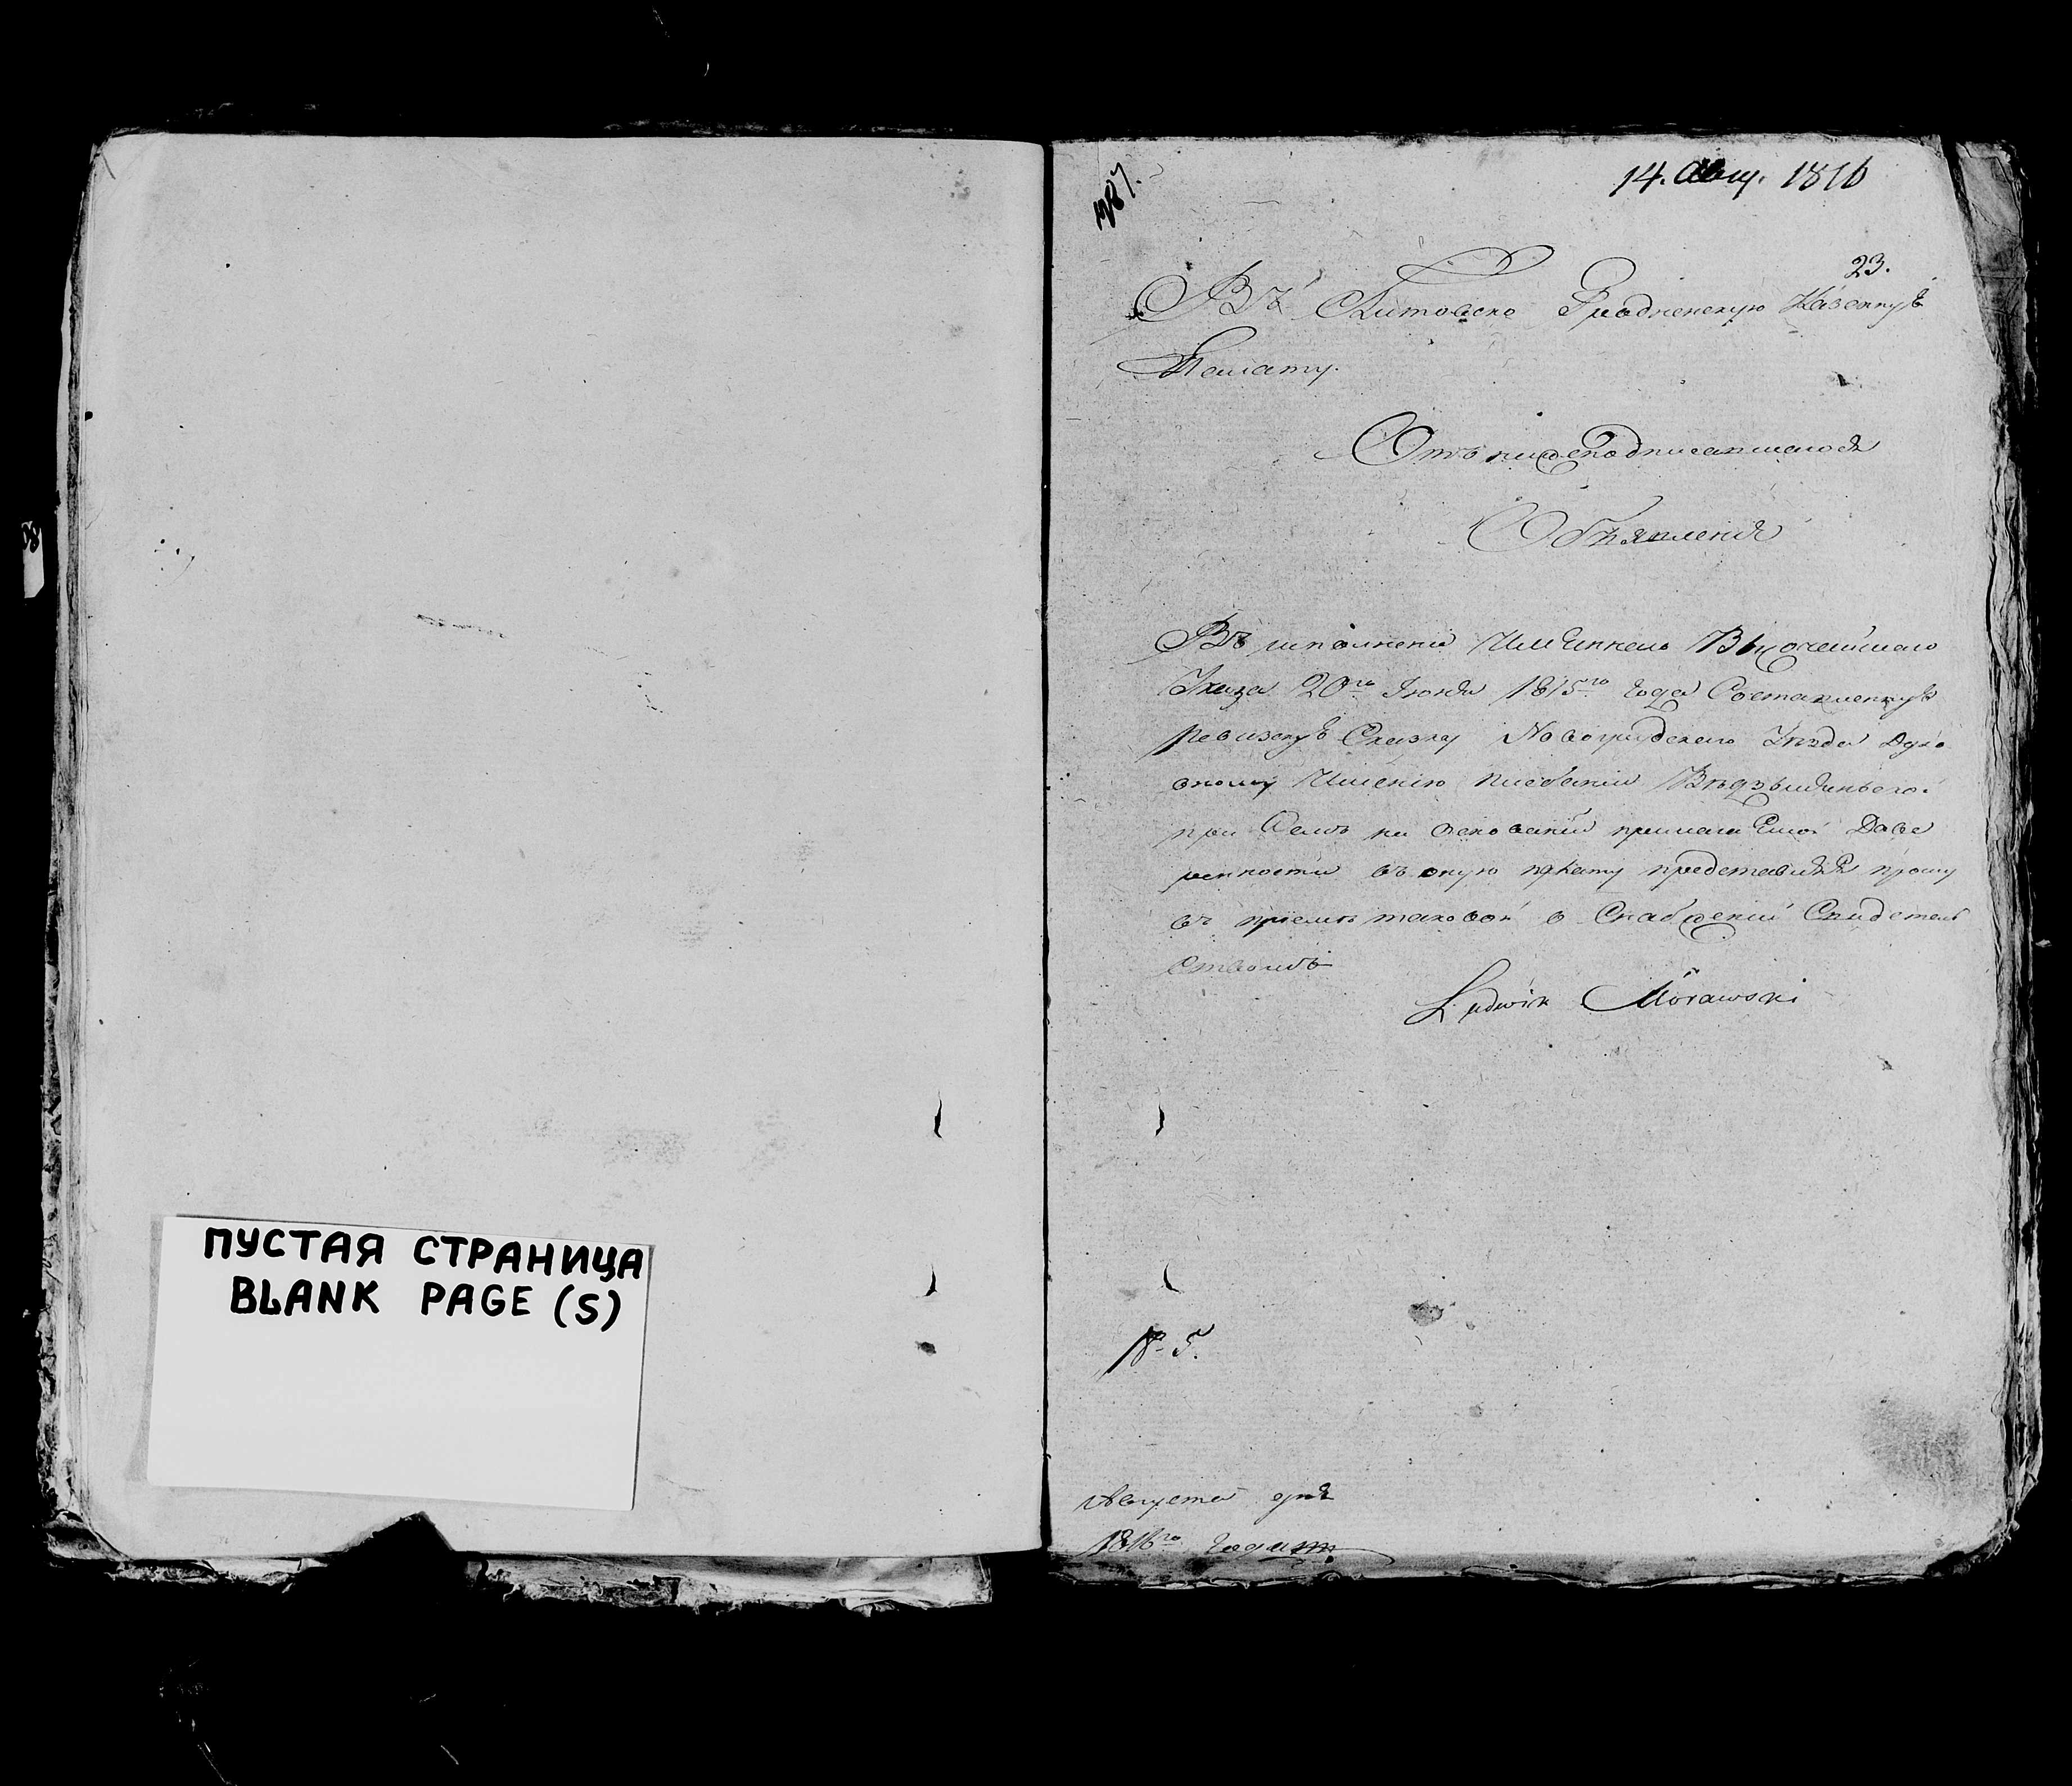 ПУСТАЯ СТРАНИЦА
BLANK PAGE (S)
14. Авгу. 1816
23.
Въ Литовско Гродненскую Казенную
Палату.
Отъ нижеподписавшагося
Объявления
Въ исполнение Имяннаго Высочайшаго
Указа 20го Іюня 1815го года Составленную
ревизскую Сказку Новогрудскаго Уезда Духо
вному Имению плебании
при на основании прилагаемой Дове
ренности въ оную представляя прошу
въ приеме таковой о Снабжении Свидетель
Ствомъ
Ludwik Morawski
№ 5.
Августа дня
1816го года